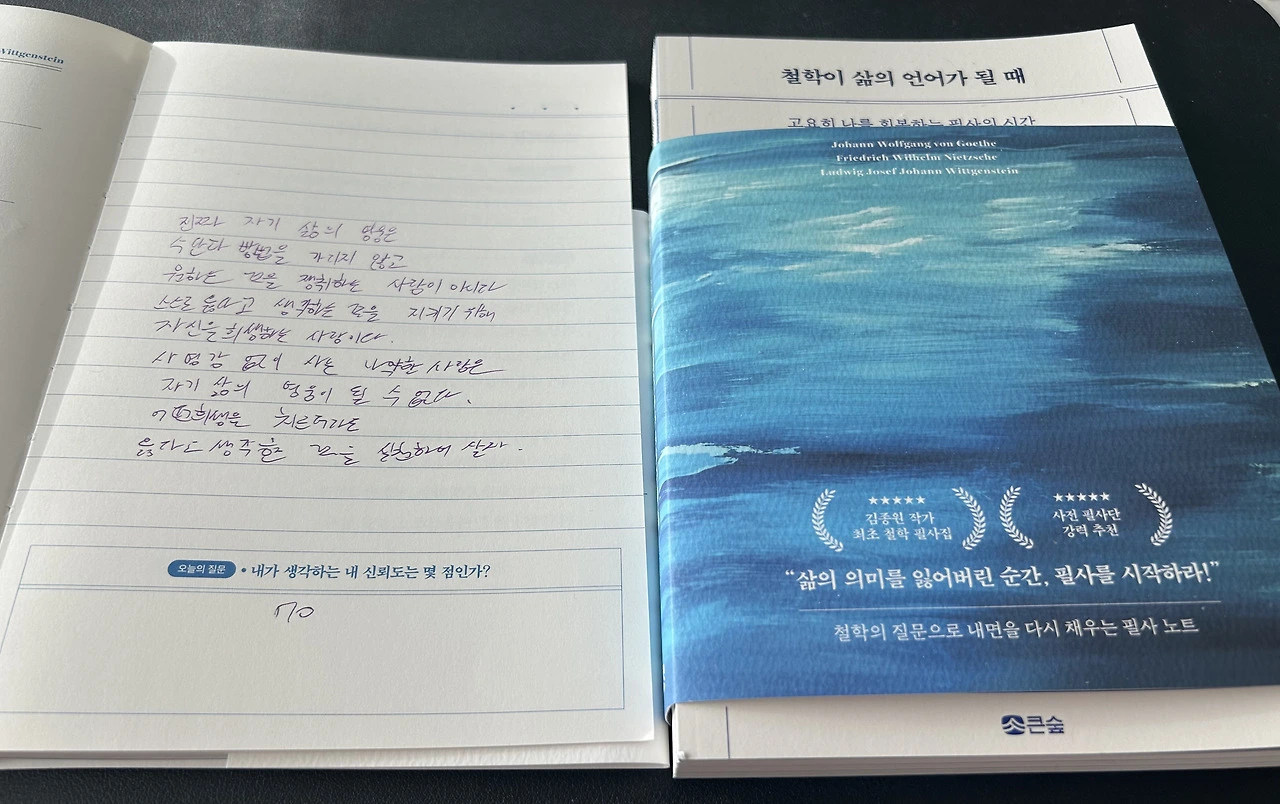 Wittgenstein
진짜 자기 삶의 영웅은
수단과 방법을 가리지 않고
원하는 것을 쟁취하는 사람이 아니라
스스로 옳다고 생각하는 것을 지키기 위해
자신을 희생하는 사람이다.
사명감 없이 사는 나약한 사람은
자기 삶의 영웅이 될 수 없다.
희생을 치르더라도
옳다고 생각한 것을 실천하며 살라.
오늘의 질문 • 내가 생각하는 내 신뢰도는 몇 점인가?
70
철학이 삶의 언어가 될 때
고요히 나를 회복하는 필사의 시간
Johann Wolfgang von Goethe
Friedrich Wilhelm Nietzsche
Ludwig Josef Johann Wittgenstein
★★★★★
김종원 작가
최초 철학 필사집
★★★★★
사전 필사단
강력 추천
“삶의 의미를 잃어버린 순간, 필사를 시작하라!”
철학의 질문으로 내면을 다시 채우는 필사 노트
큰숲